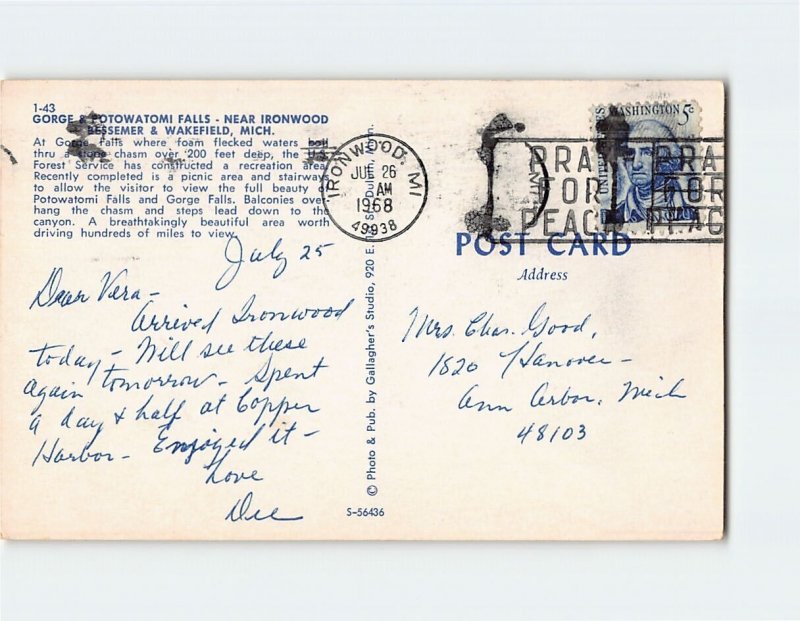 1-43
GORGE & POTOWATOMI FALLS - NEAR IRONWOOD
BESSEMER & WAKEFIELD, MICH.
At Gorge Falls where foam flecked waters boil
thru a stone chasm over 200 feet deep, the U.S.
Forest Service has constructed a recreation area.
Recently completed is picnic area and stairways
to allow the visitor to view the full beauty of
Potowatomi Falls and Gorge Falls. Balconies over-
hang the chasm and steps lead down to the
canyon. A breathtakingly beautiful area worth
driving hundreds of miles to view.
July 25
Dear Vera -
Arrived Ironwood
today - Will see these
again tomorrow - Spent
a day & half at Copper
Harbor - Enjoyed it -
Love
Dee
© Photo & Pub. by Gallagher's Studio, 920 E. St., Duluth, Minn.
S-56436
IRONWOOD, MI
JUL 26
AM
1968
49938
MI
PRAY
FOR
PEACE
PRA
FOR
PEAC
UNITED STATES
WASHINGTON 5c
POST CARD
Address
Mrs. Chas. Good,
1820 Hanover -
Ann Arbor, Mich
48103